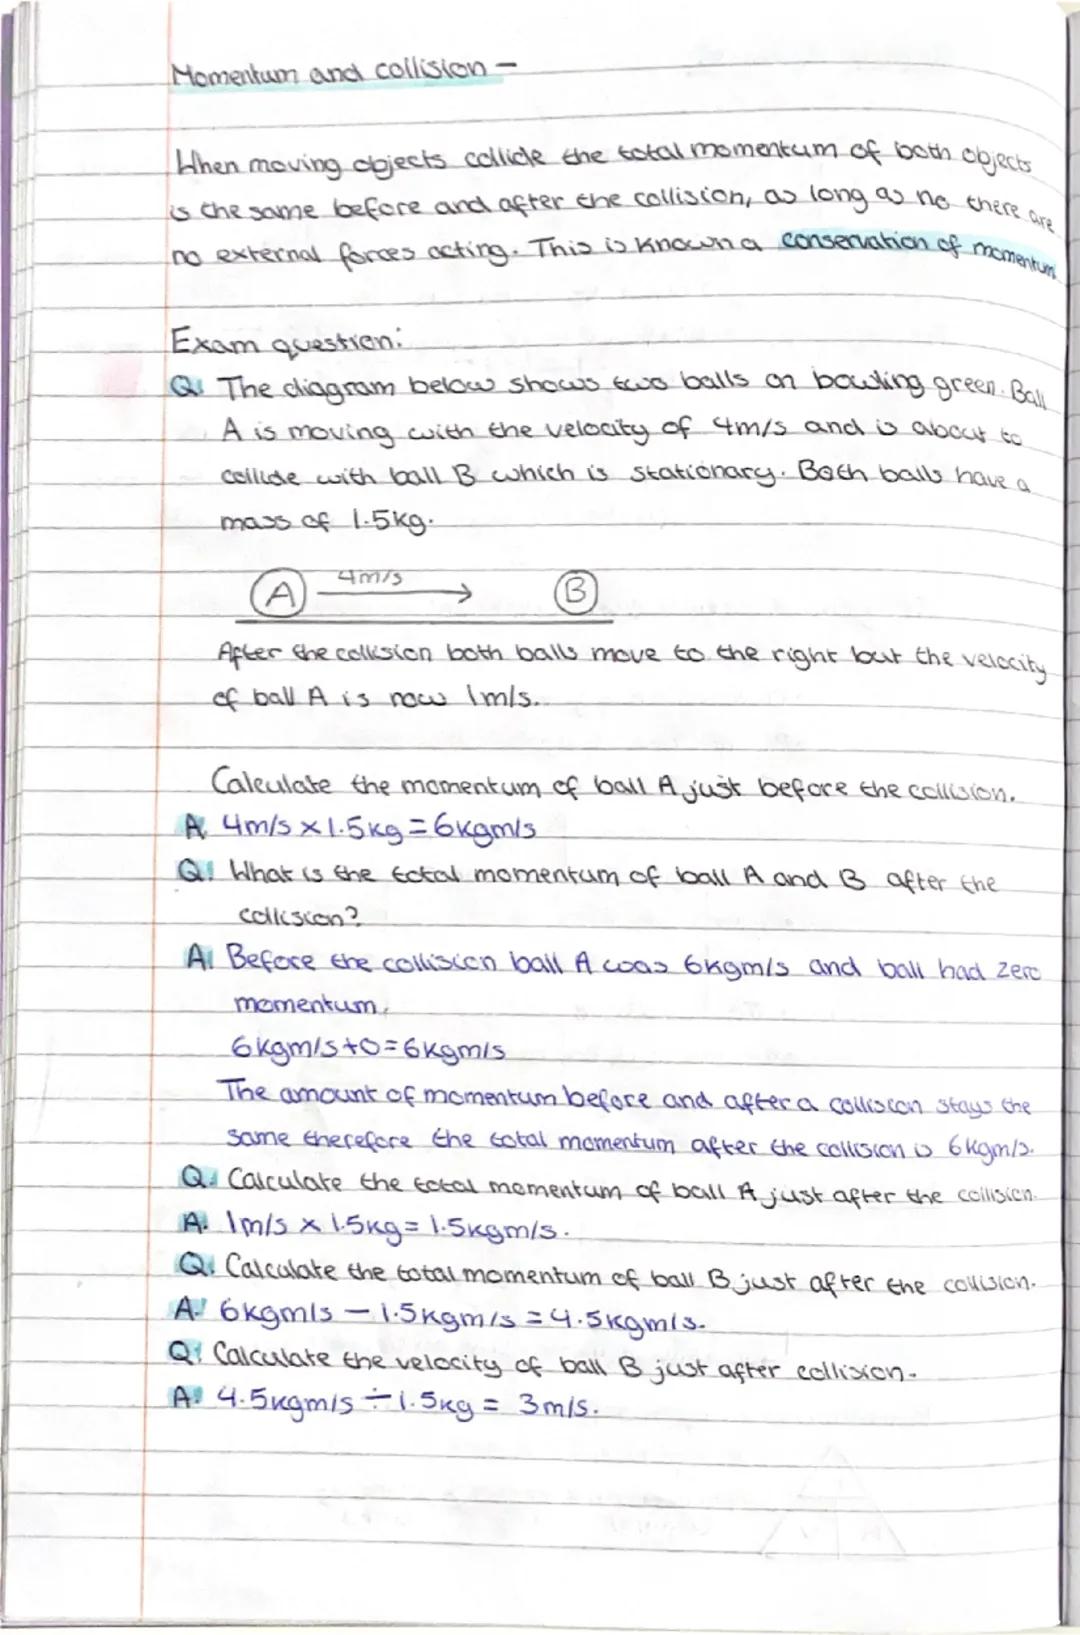 Momentum and collision -
When moving objects collide the total momentum of both objects
is the same before and after the collision, as long as no there are
no external forces acting. This is known a conservation of momentum
Exam question:
Q. The diagram below shows two balls on bowling green. Ball
A is moving with the velocity of 4m/s and is about to
collide with ball B which is stationary. Both balls have a
mass of 1.5kg.
A 4m/s B
After the collision both balls move to the right but the velocity
of ball A is now 1m/s.
Calculate the momentum of ball A just before the collision.
A. 4m/s × 1.5kg = 6kgm/s
Q. What is the total momentum of ball A and B after the
collision?
A. Before the collision ball A was 6kgm/s and ball had zero
momentum.
6kgm/s + 0 = 6kgm/s
The amount of momentum before and after a collision stays the
same therefore the total momentum after the collision is 6kgm/s.
Q. Calculate the total momentum of ball A just after the collision.
A. 1m/s × 1.5kg = 1.5kgm/s.
Q. Calculate the total momentum of ball B just after the collision.
A. 6kgm/s - 1.5kgm/s = 4.5kgm/s.
Q. Calculate the velocity of ball B just after collision.
A. 4.5kgm/s ÷ 1.5kg = 3m/s.